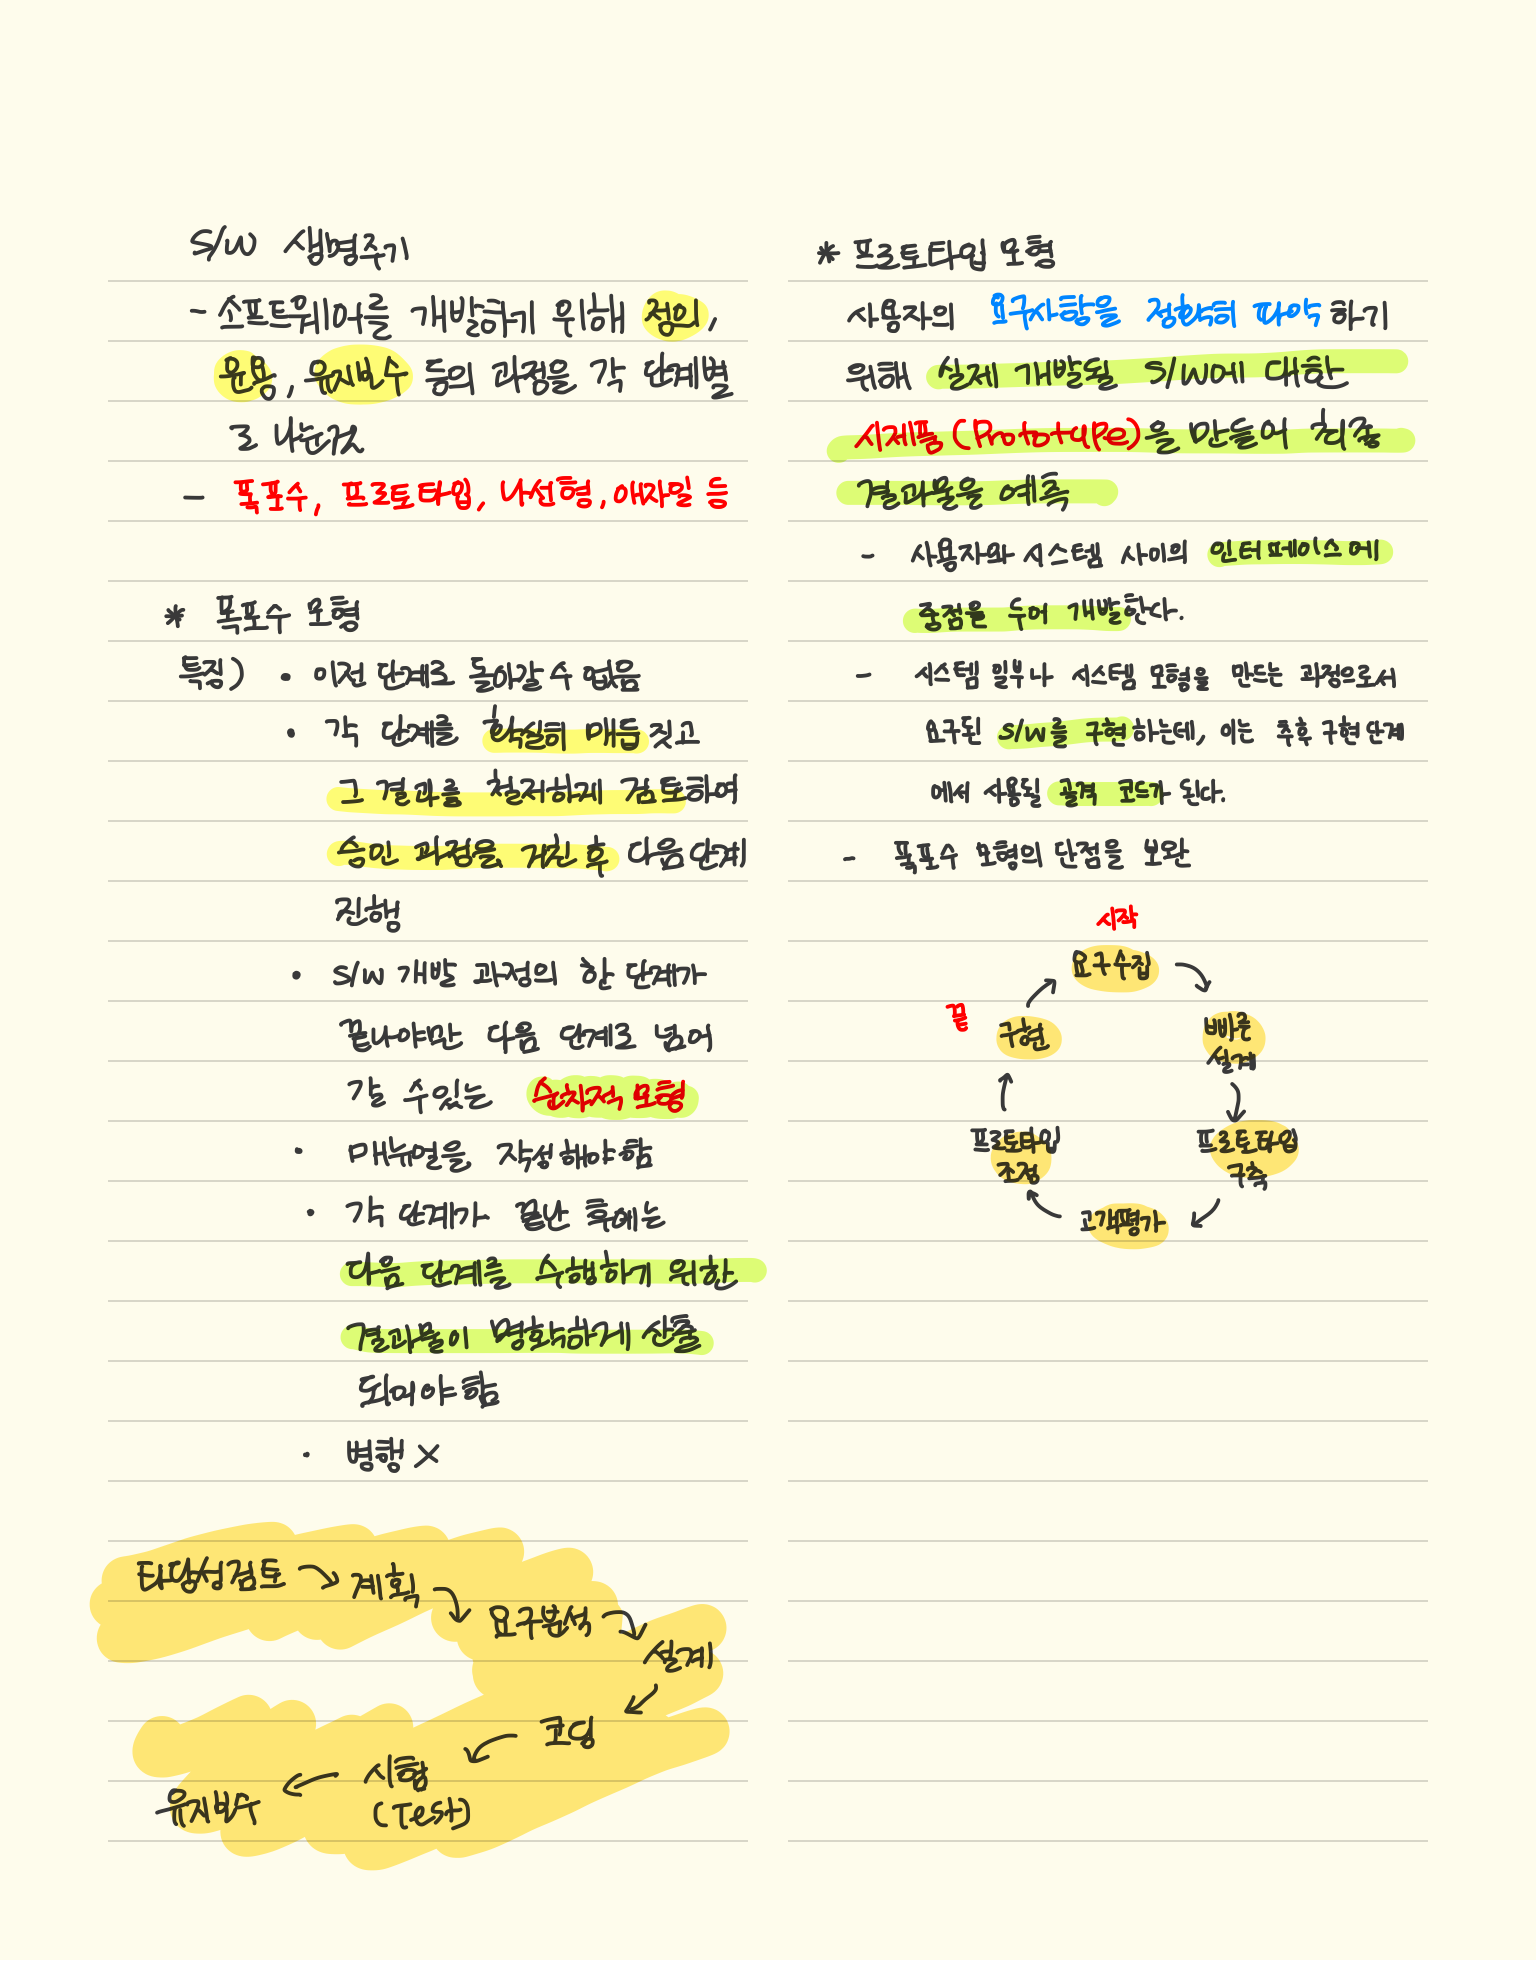 S/W 생명주기
- 소프트웨어를 개발하기 위해 정의,
운용, 유지보수 등의 과정을 각 단계별
로 나눈것
- 폭포수, 프로토타입, 나선형, 애자일 등
* 폭포수 모형
특징) • 이전 단계로 돌아갈 수 없음
• 각 단계를 확실히 매듭 짓고
그 결과를 철저하게 검토하여
승인 과정을 거친 후 다음 단계
진행
• S/W 개발 과정의 한 단계가
끝나야만 다음 단계로 넘어
갈 수 있는 순차적 모형
• 매뉴얼을 작성해야 함
• 각 단계가 끝난 후에는
다음 단계를 수행하기 위한
결과물이 명확하게 산출
되어야 함
• 병행 X
타당성검토 → 계획
요구분석 →
설계
코딩
시험
(Test)
유지보수
* 프로토타입 모형
사용자의 요구사항을 정확히 파악 하기
위해 실제 개발될 S/W에 대한
시제품(Prototype)을 만들어 최종
결과물을 예측
- 사용자와 시스템 사이의 인터페이스에
중점을 두어 개발한다.
- 시스템 일부나 시스템 모형을 만드는 과정으로서
요구된 S/W를 구현하는데, 이는 추후 구현 단계
에서 사용될 골격 코드가 된다.
- 폭포수 모형의 단점을 보완
시작
요구수집
빠른
설계
프로토타입
구축
고객평가
프로토타입
조정
구현
끝